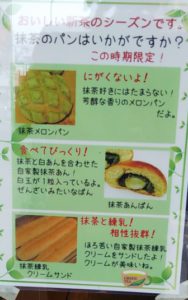 おいしい新茶のシーズンです。
抹茶のパンはいかがですか？
この時期限定！
にがくないよ！
抹茶好きにはたまらない！
芳醇な香りのメロンパン
抹茶メロンパン
食べてびっくり！
抹茶と白あんを合わせた
自家製抹茶あん！
白玉が1粒入っているよ。
ぜんざいみたいなパン
抹茶あんぱん
抹茶と練乳！
相性抜群！
ほろ苦い自家製抹茶練乳
クリームをサンドしたよ！
クリームが美味いね。
抹茶練乳
クリームサンド